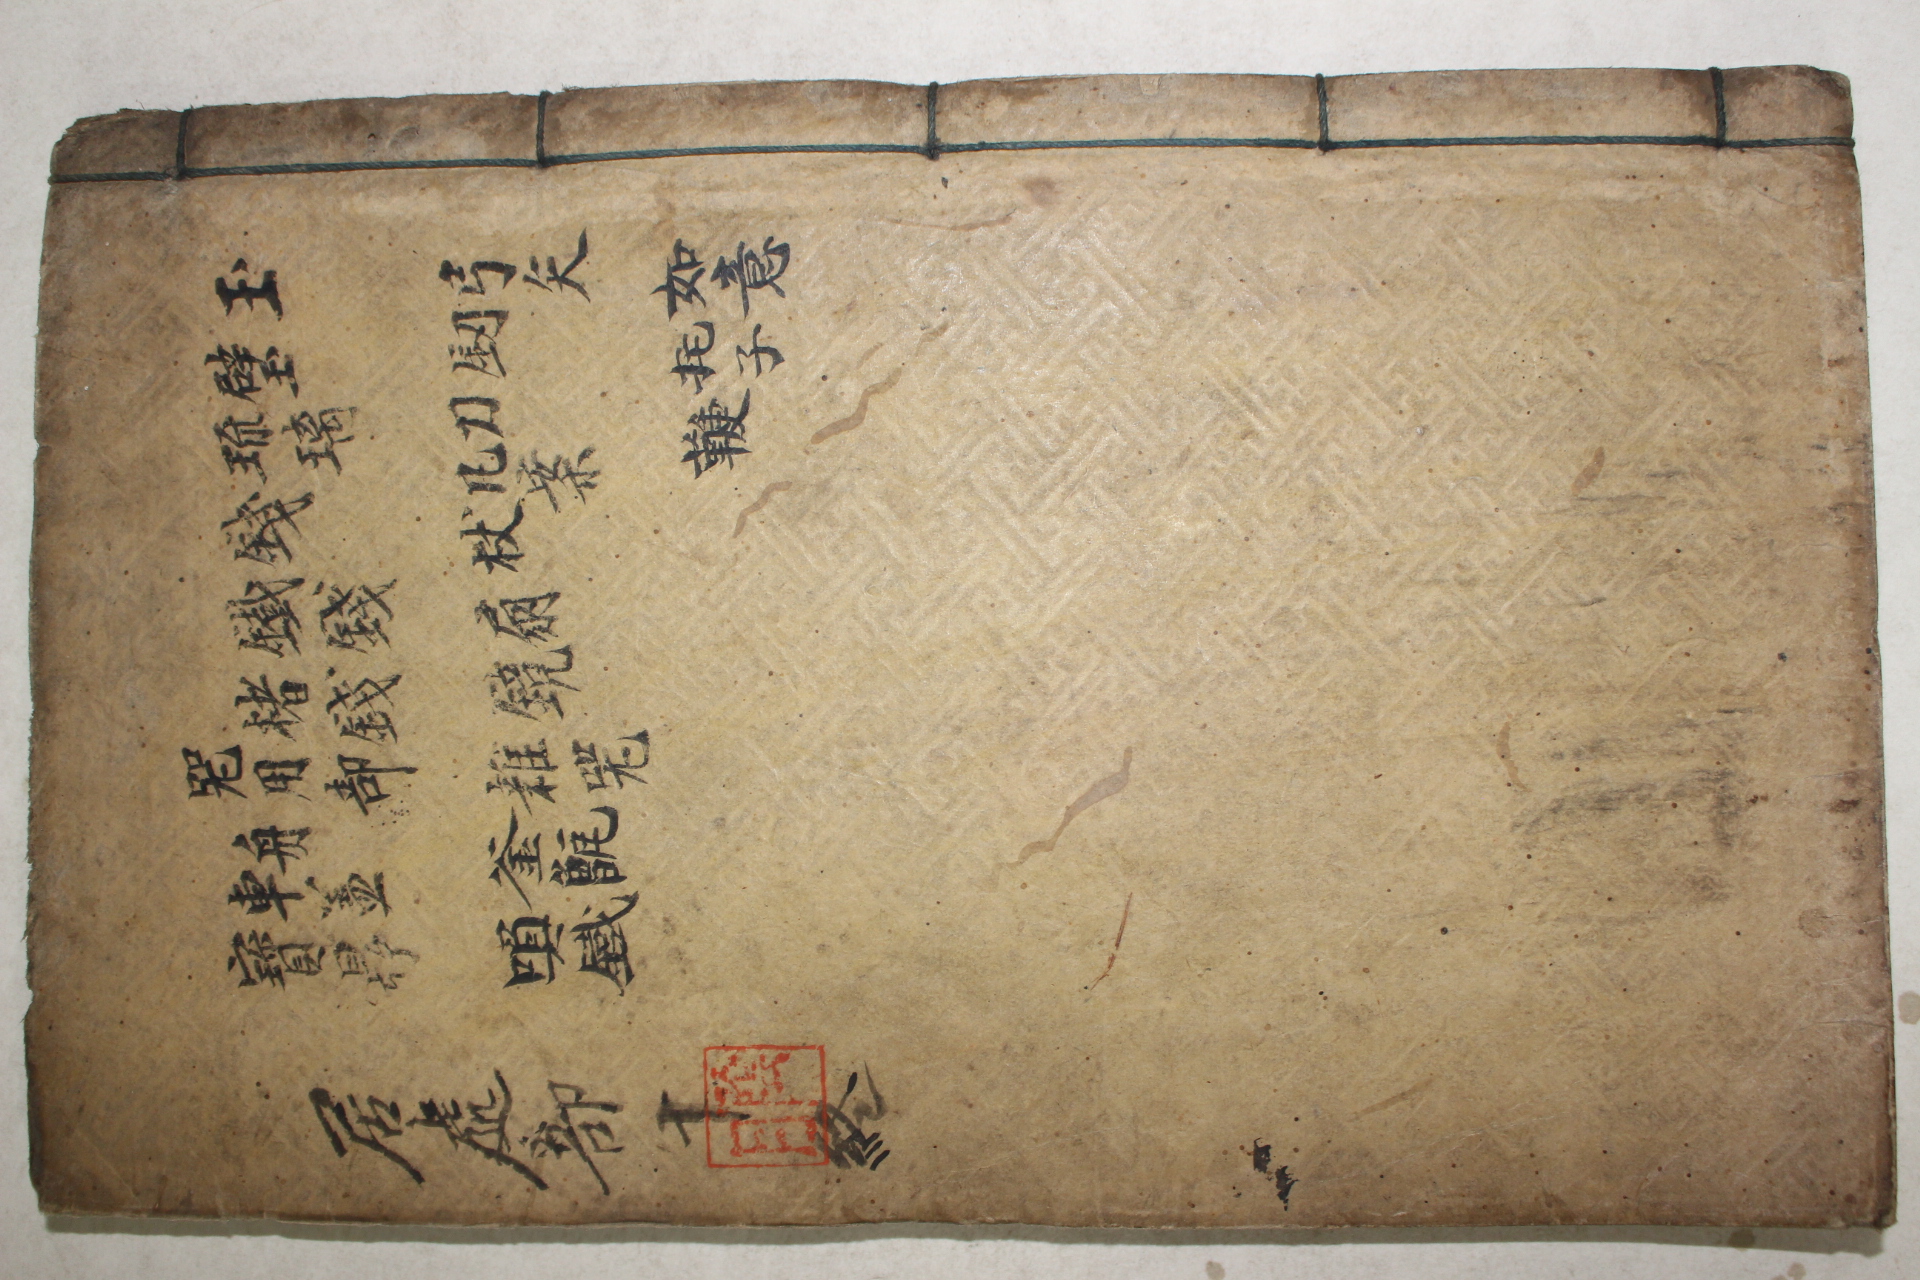 玉
璧
琉璃
錢
鐵錢
楮錢
器用部
舟
車盖
寶鼎
弓矢
釼
刀
几案
杖
扇
鏡
雜器
釜甑
鐵
如意
子
鞭
居處部 十 終